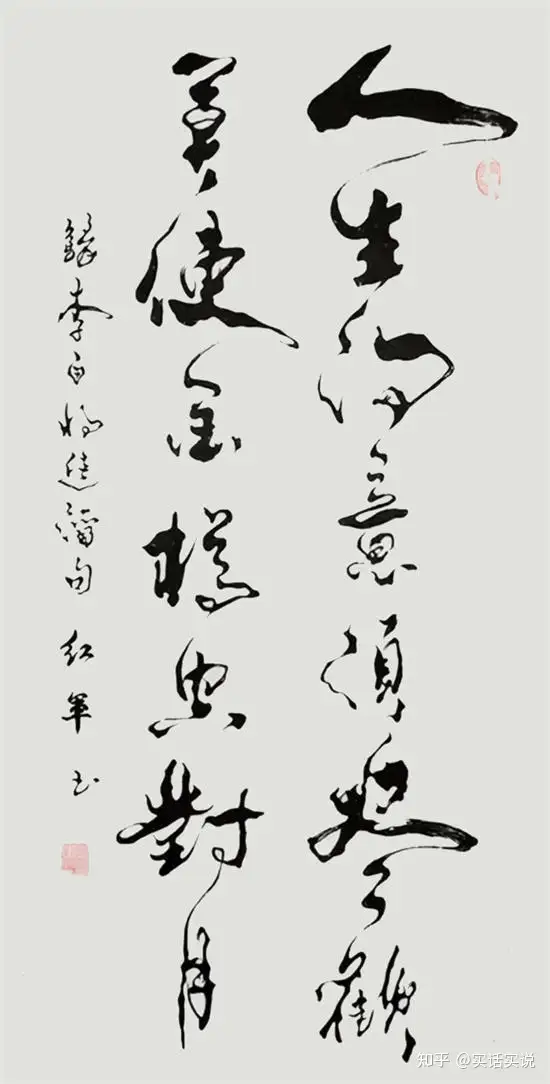 人生得意須盡歡
莫使金樽空對月
錄李白將進酒句 紅軍书
知乎 @实话实说